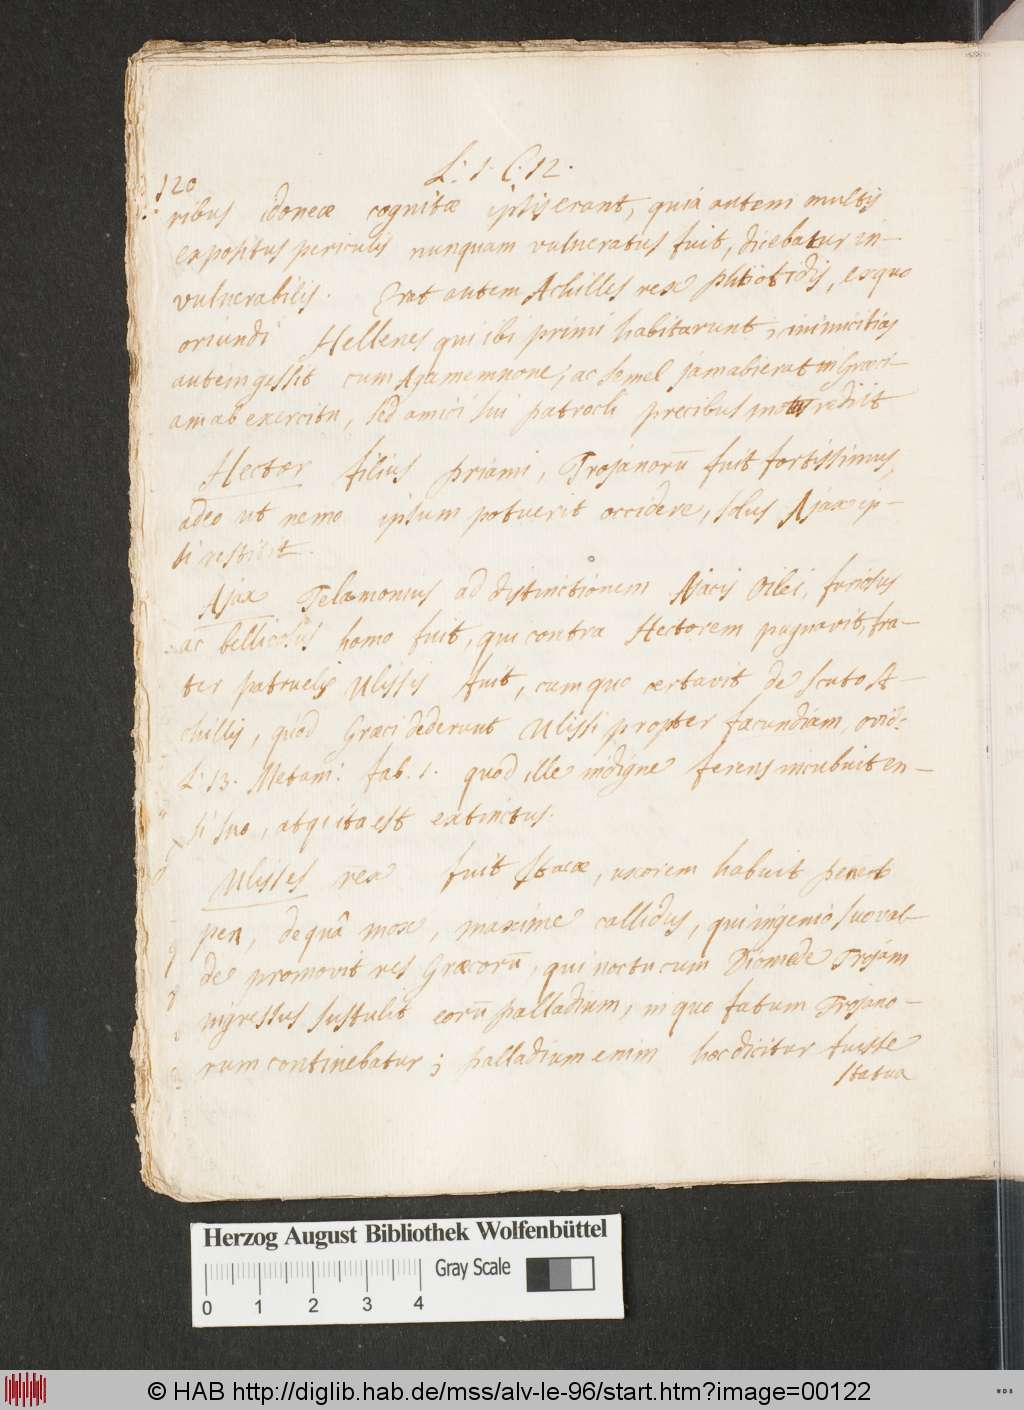 L: 1. C. 12.
120
ribus idoneæ cognitæ ipsis erant, quia autem multis
expositus periculis nunquam vulneratus fuit, dicebatur in-
vulnerabilis. Erat autem Achilles rex phtiotidis, ex quo
oriundi Hellenes qui ibi primi habitarunt, inimicitias
autem gessit cum Agamemnone, ac semel jam abierat in Græci-
am ab exercitu, sed amici sui patrocli precibus motus rediit
Hector filius priami, Trojanorū fuit fortissimus,
adeo ut nemo ipsum potuerit occidere, solus Ajax ip-
si restitit.
Ajax Telamonius ad distinctionem Ajacis Oilei, furiosus
ac bellicosus homo fuit, qui contra Hectorem pugnavit, fra-
ter patruelis Ulissis fuit, cum quo certavit de scuto A-
chillis, quod Græci dederunt Ulissi propter facundiam, ovid:
L: 13. Metam: fab. 1. quod ille indigne ferens incubuit en-
si suo, atq; ita est extinctus.
Ulisses rex fuit Itacæ, uxorem habuit
pen, de quâ mox, maxime callidus, qui ingenio suo val-
de promovit res Græcorū, qui noctu cum Diomede Trojam
ingressus sustulit eorū palladium, in quo fatum Trojano-
rum continebatur; palladium enim hoc dicitur fuisse
statua
Herzog August Bibliothek Wolfenbüttel
Gray Scale
0 1 2 3 4
© HAB http://diglib.hab.de/mss/alv-le-96/start.htm?image=00122